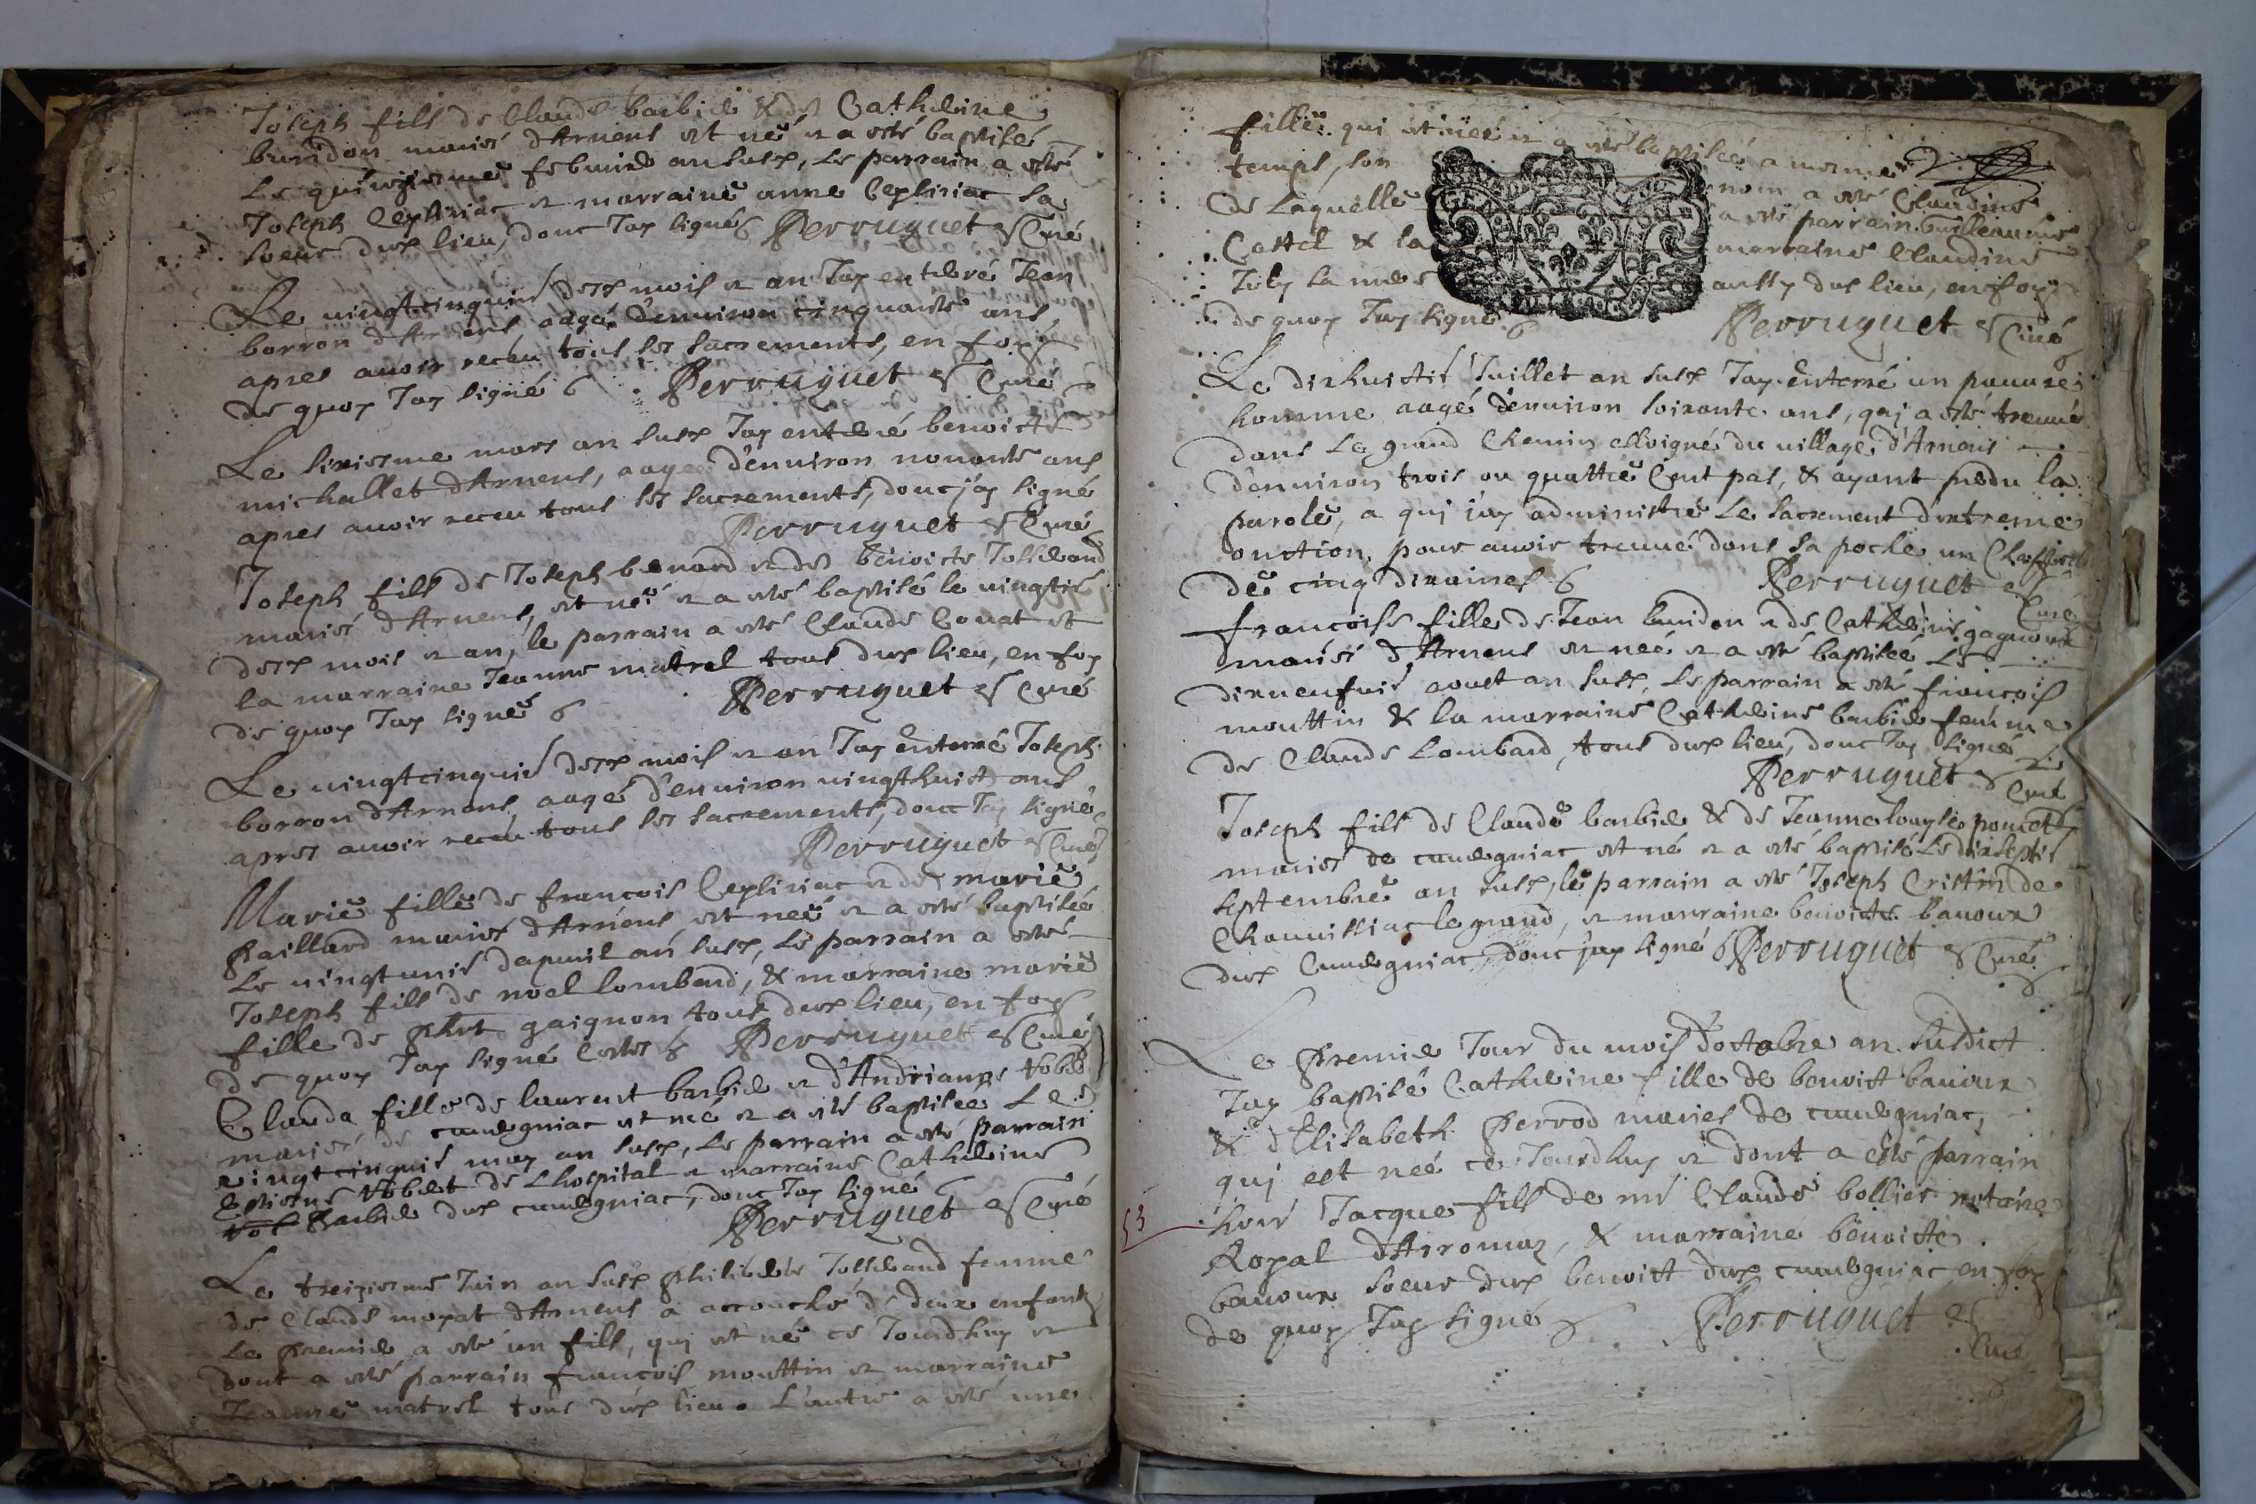 Joseph fils de Claude barbier & de Catherine
buridon mariés d'Arnens est né et a esté baptisé
le quinziesme febvrier an susd, le parrain a esté
Joseph Cepliriac et marraine anne Cepliriac sa
soeur dud lieu, donc Jay signé Perruquet Curé
Le vingtcinquie desd mois et an Jay enterré Jean
borron d'Arnens aagé d'environ cinquante ans,
apres avoir receu tous les sacrements, en foy
de quoy Jay signé Perruquet Curé
Le sixiesme mars an susd Jay enterré benoicte
michallet d'Arnens, aagee d'environ nonante ans
apres avoir receu tous les sacrements, donc jay signé
Perruquet Curé
Joseph fils de Joseph benard et de benoicte Josserand
mariés d'Arnens, est né et a esté baptisé le vingtie
desd mois et an, le parrain a esté Claude Convat et
la marraine Jeanne matrel tous dud lieu, en foy
de quoy Jay signé Perruquet Curé
Le vingtcinquie desd mois et an Jay enterré Joseph
borron d'Arnens, aagé d'environ vingthuict ans
apres avoir receu tous les sacrements, donc Jay signé
Perruquet Curé
Marie fille de francois Cepliriac et de marie
Paillard mariés d'Arnens, est neé et a esté baptisée
le vingtunie dapvril an susd, le parrain a esté
Joseph fils de noel lombard, & marraine marie
fille de phlt gaignon tous dud lieu, en foy
de quoy Jay signé Perruquet Curé
Clauda fille de laurent barbier et d'Andrianne
mariés de cuvergniac est neé et a esté baptisee Le
vingtcinquie may an susd, le parrain a esté parrain
de Lhospital et marraine Catherine
Barbier dud cuvergniac, donc Jay signé
Perruquet Curé
Le treiziesme Juin an susd philiberte Josserand femme
de Claude moyat d'Arnens a accouché de deux enfants
Le premier a esté un fils, qui est né ce Jourdhuy et
dont a esté parrain francois mouttin et marraine
Jeanne matrel tous dud lieu. L'autre a esté une
fille qui est neé et a esté baptisée a mesme
temps, son nom a esté Claudine
de laquelle a esté parrain Guilleaume
Cattel & la marraine Claudine
July sa mere aussy dud lieu, en foy
de quoy Jay signé Perruquet Curé
Le dixhuictie Juillet an susd Jay enterré un pauvre
homme aagé d'environ soixante ans, qui a esté treuvé
dans le grand chemin esloigné du village d'Arnens
d'environ trois ou quattre cent pas, & ayant perdu la
parole, a qui jay administré le sacrement d'extreme
onction, pour avoir treuvé dans sa poche un Chappelet
de cinq dixaines Perruquet
Curé
francoise fille de Jean buridon et de Catherine gagnond
mariés d'Arnens est neé et a esté baptisée le
dixneufvie aoust an susd, le parrain a esté francois
mouttin & la marraine Catherine barbier femme
de Claude Lombard, tous dud lieu, donc Jay signé
Perruquet Curé
Joseph fils de Claude barbier & de Jeanne louyse poncet
mariés de cuvergniac est né et a esté baptisé le dixseptie
septembre an susd, le parrain a esté Joseph Cristin de
Chavissiac le grand, et marraine benoicte bavoux
dud Cuvergniac, donc jay signé Perruquet Curé
Le Premier Jour du mois d'octobre an susdict
Jay baptisé Catherine fille de benoist bavoux
& d'Elisabeth Perrod mariés de cuvergniac,
qui est neé ce Jourdhuy et dont a esté parrain
53
honr Jacque fils de mr Claude bollier notaire
Royal d'Arromaz, & marraine benoicte
bavoux soeur dud benoist dud cuvergniac en foy
de quoy Jay signé Perruquet
Curé